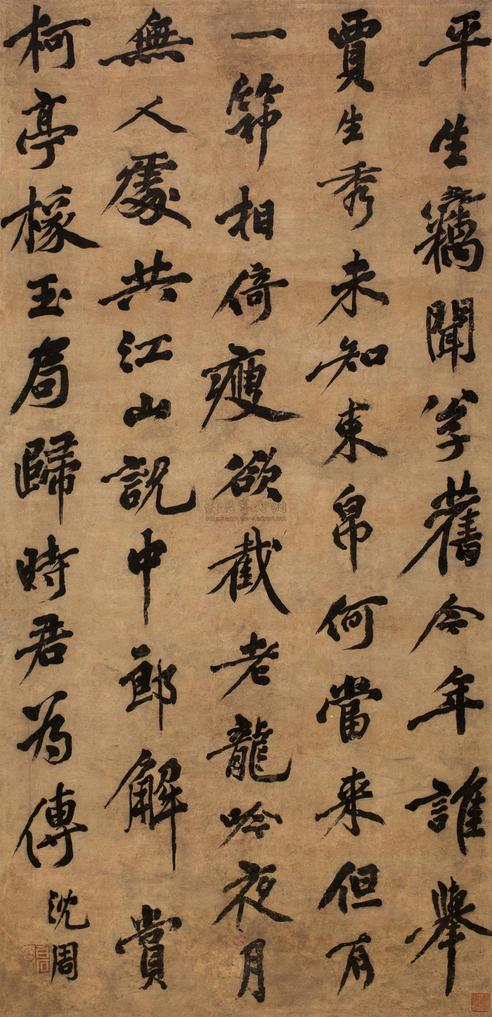 平生竊聞公子舊今年誰舉
賈生秀未知束帛何當来但有
一筇相倚瘦欲截老龍吟夜月
無人處共江山說中郎解賞
柯亭椽玉局歸時君為傳
沈周